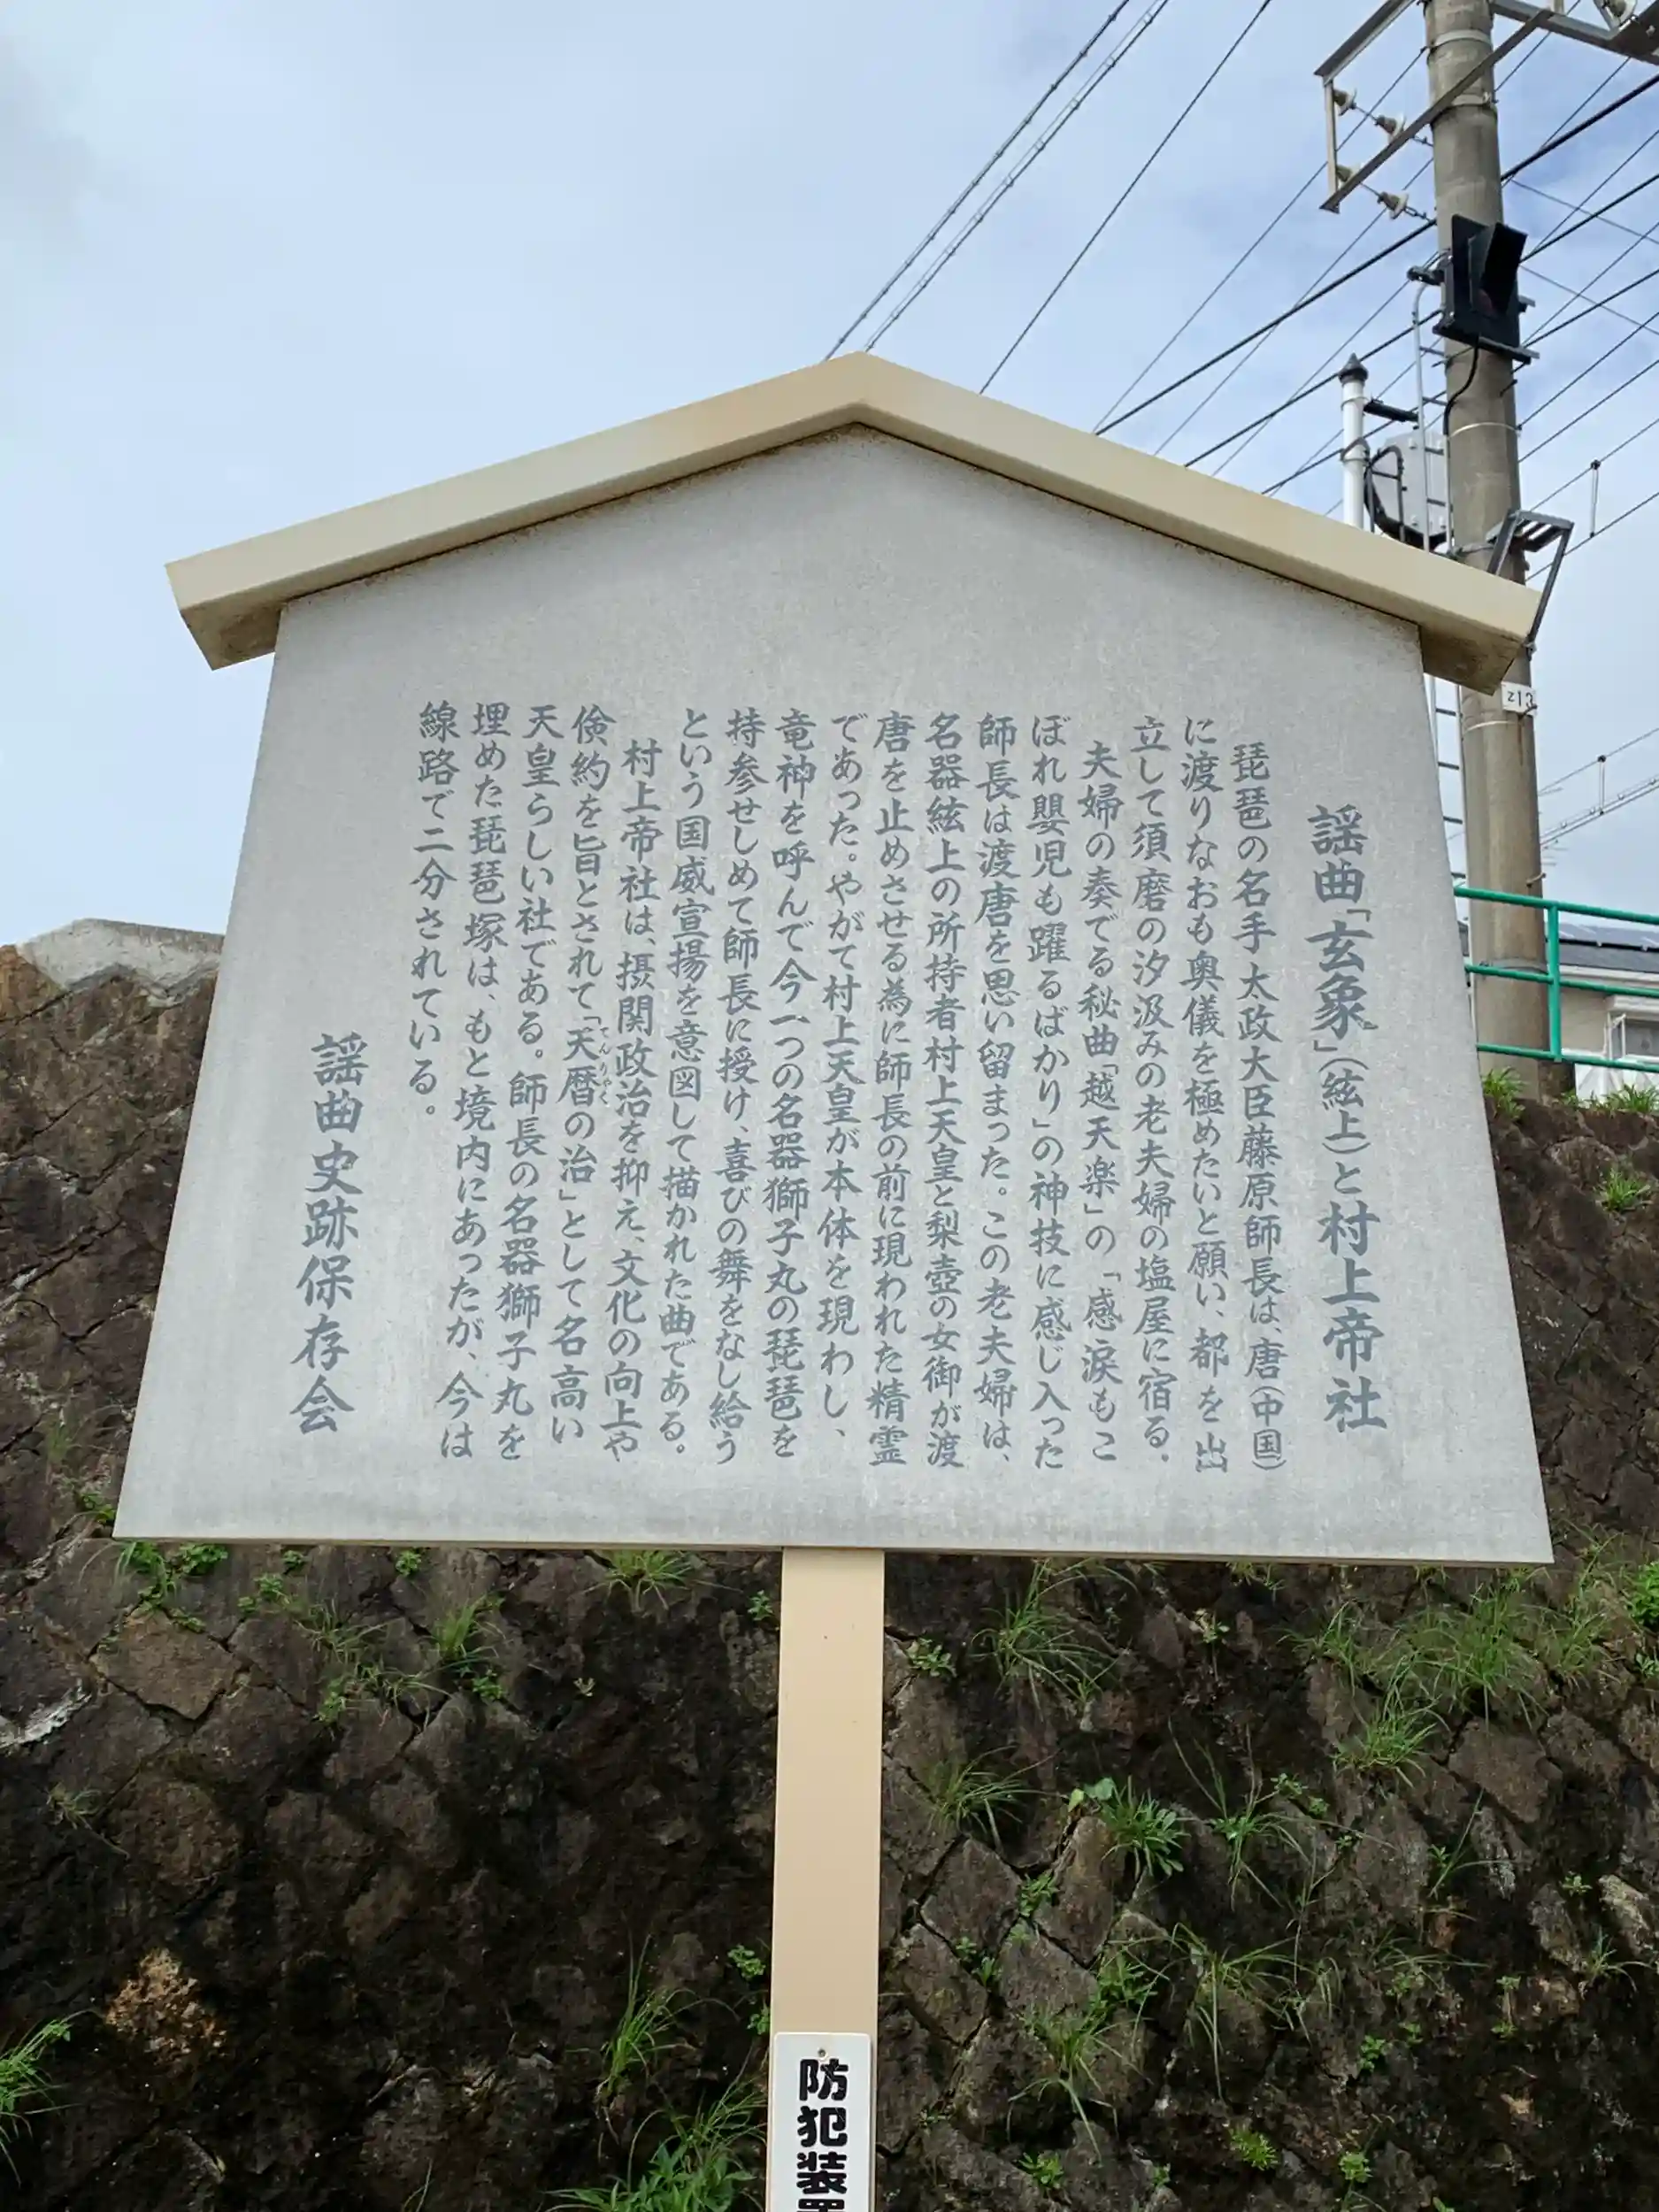 謡曲「玄象」(絃上)と村上帝社
琵琶の名手太政大臣藤原師長は、唐(中国)
に渡りなおも奥儀を極めたいと願い、都を出
立して須磨の汐汲みの老夫婦の塩屋に宿る。
夫婦の奏でる秘曲「越天楽」の「感涙もこ
ぼれ嬰児も躍るばかり」の神技に感じ入った
師長は渡唐を思い留まった。この老夫婦は、
名器絃上の所持者村上天皇と梨壺の女御が渡
唐を止めさせる為に師長の前に現われた精霊
であった。やがて村上天皇が本体を現わし、
竜神を呼んで今一つの名器獅子丸の琵琶を
持参せしめて師長に授け、喜びの舞をなし給う
という国威宣揚を意図して描かれた曲である。
村上帝社は、摂関政治を抑え、文化の向上や
倹約を旨とされて「天暦の治」として名高い
てんりやく
天皇らしい社である。師長の名器獅子丸を
埋めた琵琶塚は、もと境内にあったが、今は
線路で二分されている。
謡曲史跡保存会
防犯装置
z13